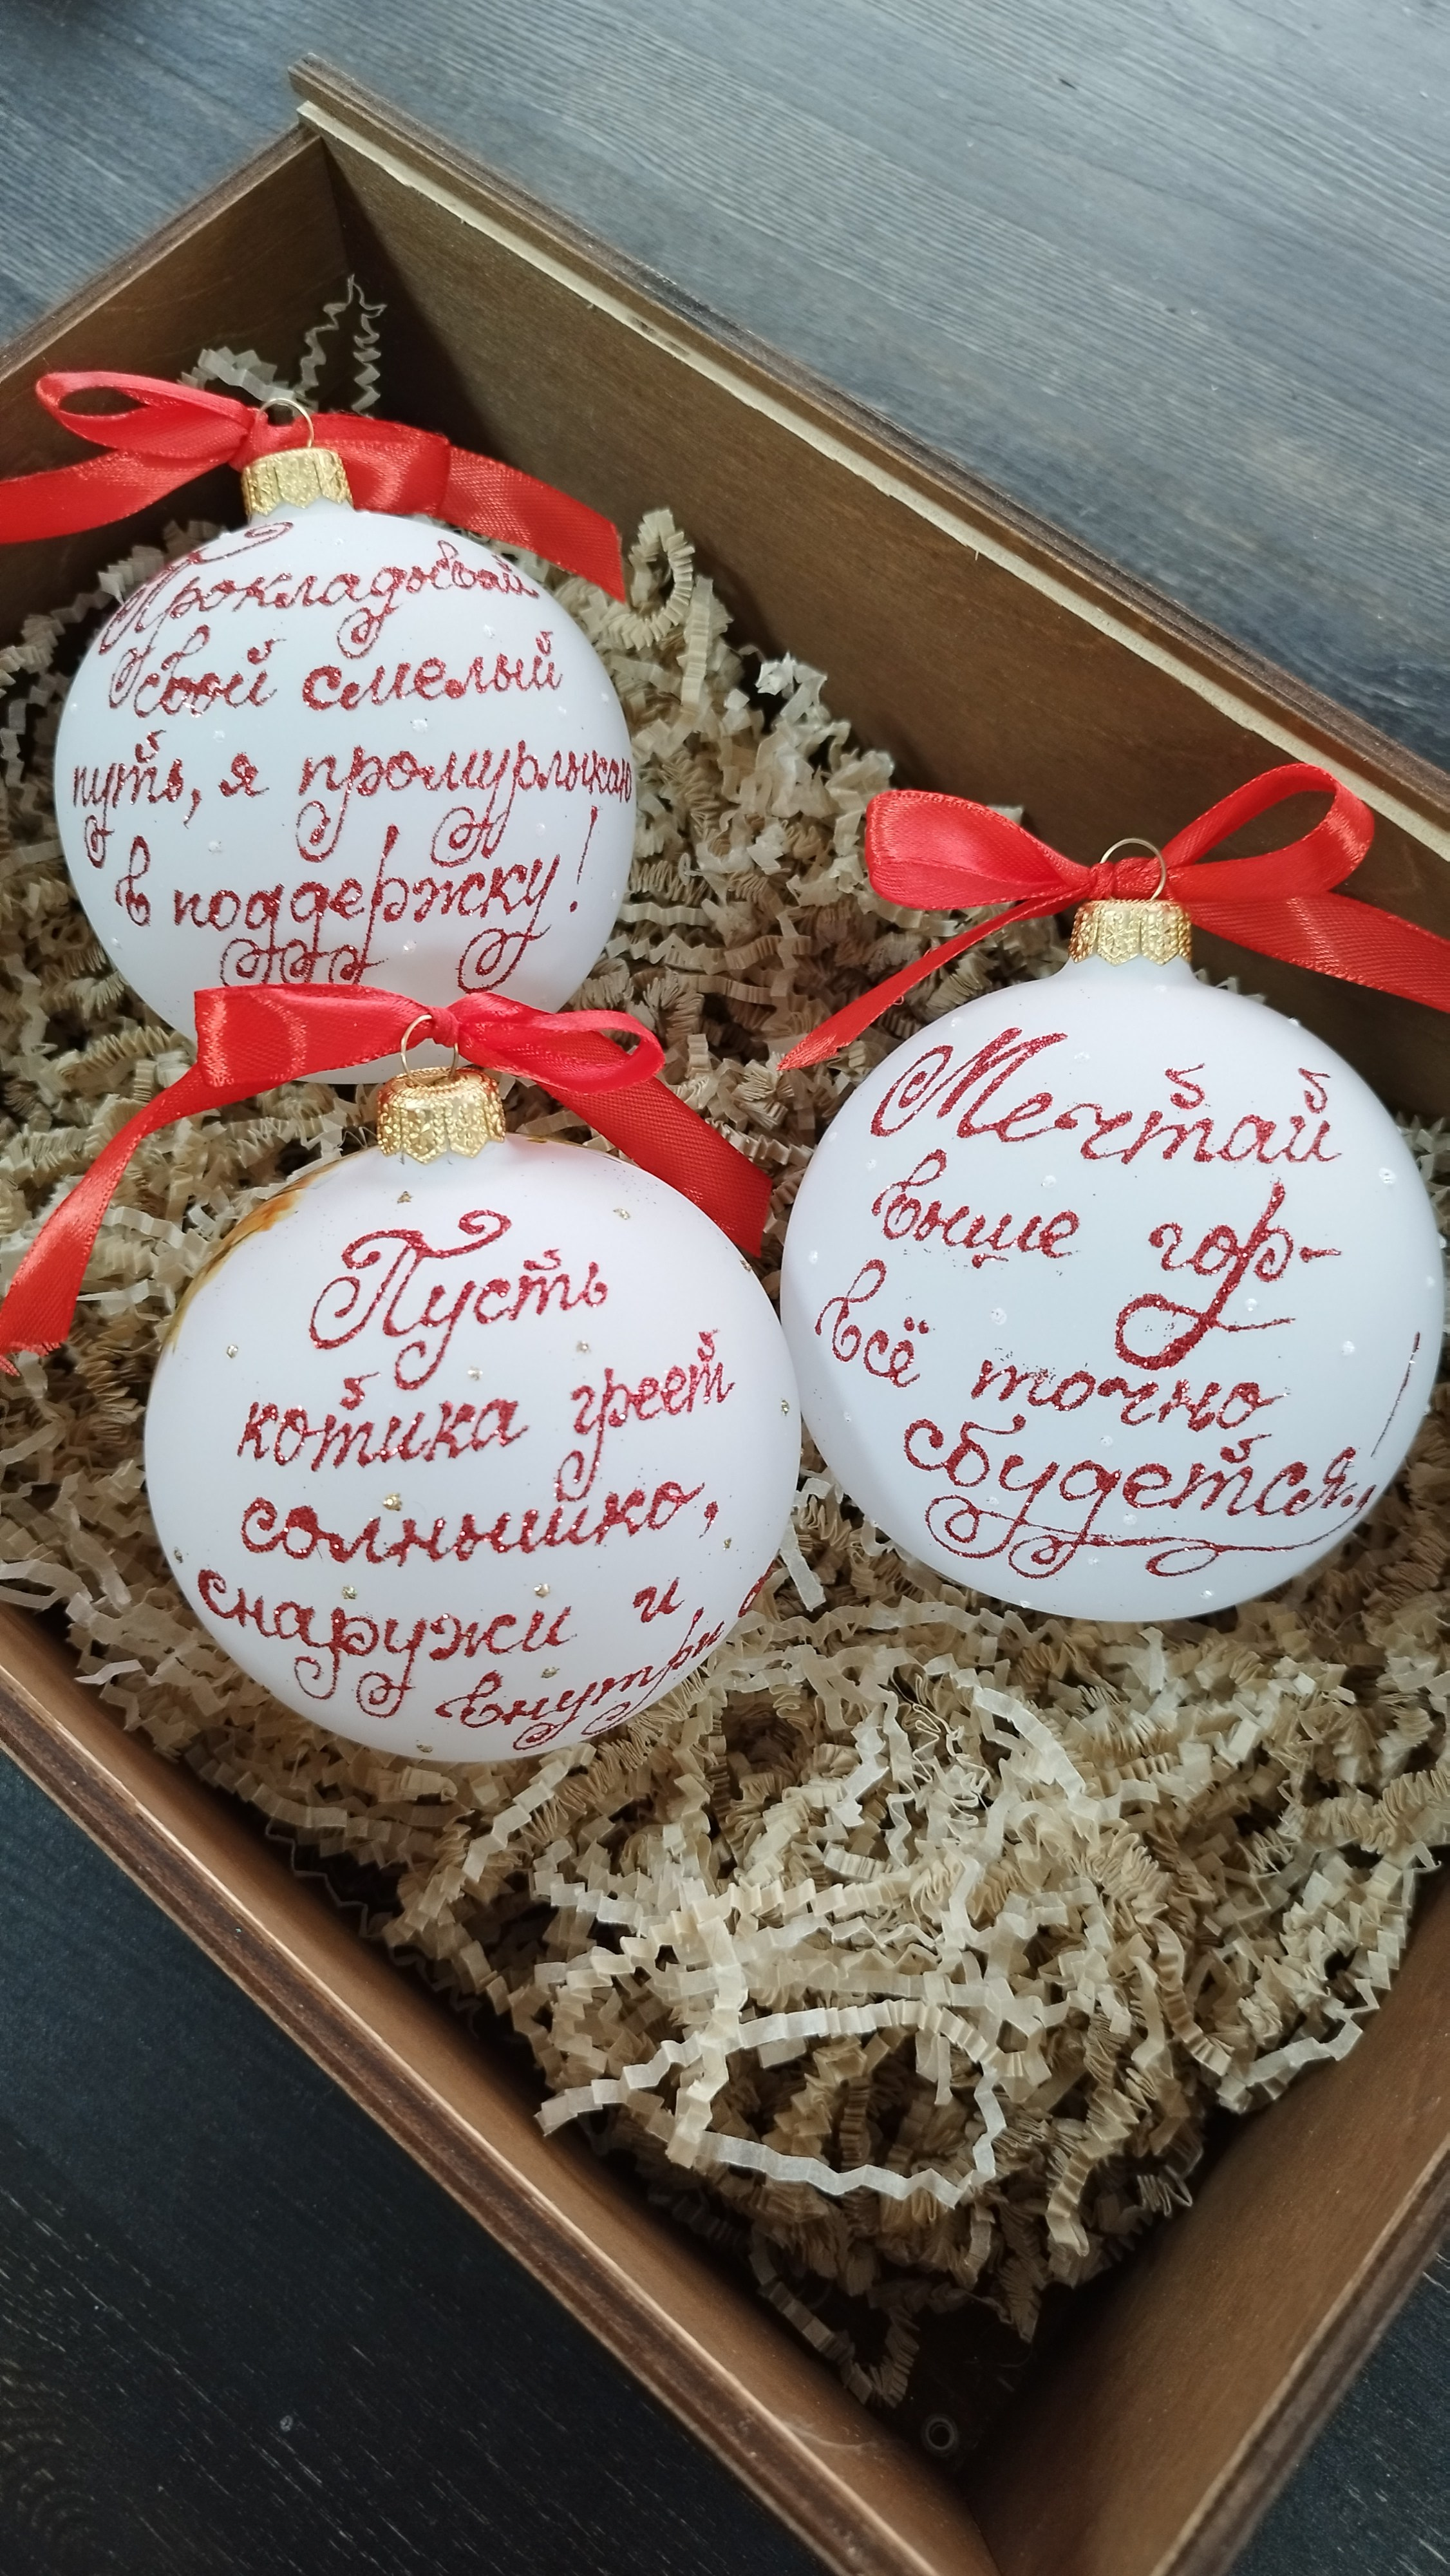 Прокладывай
свой смелый
путь, я промурлыкаю
в поддержку!
Пусть
котика греет
солнышко,
снаружи и
внутри
Мечтай
выше гор-
всё точно
сбудется!